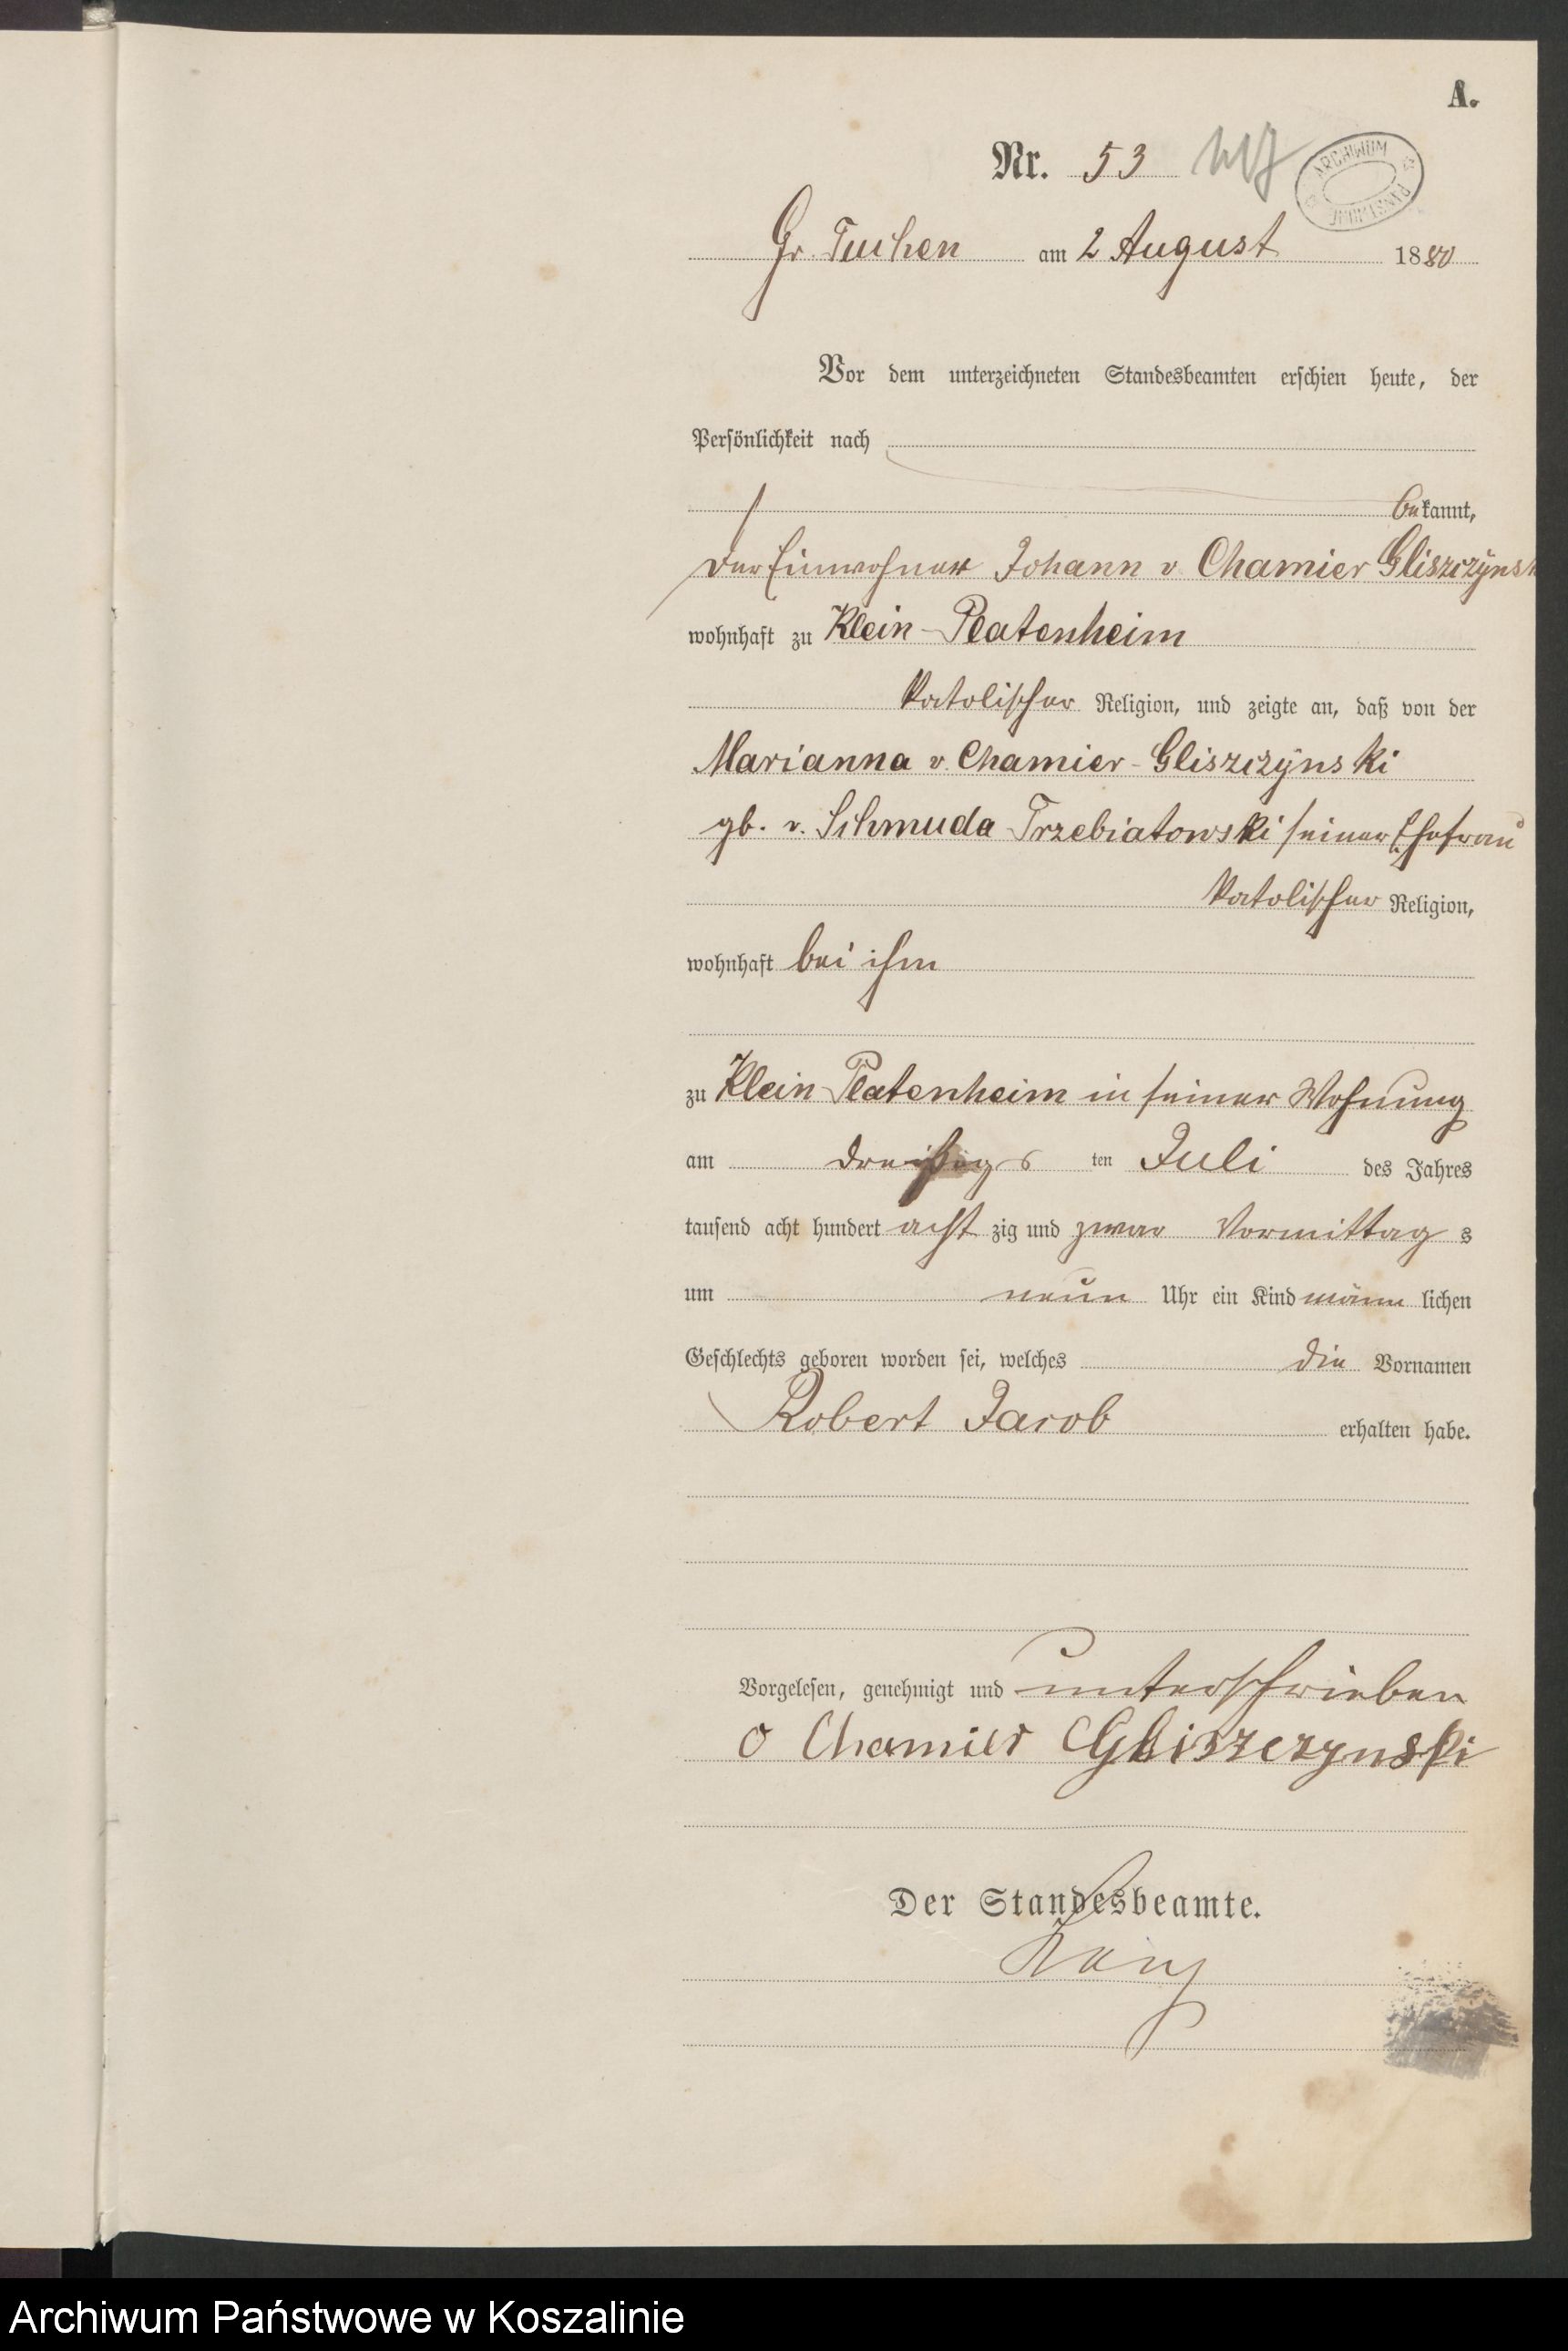 A.
Nr. 53
ARCHIWUM PAŃSTWOWE
Gr. Tuchen am 2 August 1880
Vor dem unterzeichneten Standesbeamten erschien heute, der
Persönlichkeit nach
bekannt,
der Einwohner Johann v Chamier Gliszczynsk
wohnhaft zu Klein-Platenheim
katolischer Religion, und zeigte an, daß von der
Marianna v. Chamier-Gliszczynski
gb. v. Schmuda Trzebiatowski seiner Ehefrau
katolischer Religion,
wohnhaft bei ihm
zu Klein-Platenheim in seiner Wohnung
am dreißigs ten Juli des Jahres
tausend acht hundert acht zig und zwar Vormittag s
um neun Uhr ein Kind männ lichen
Geschlechts geboren worden sei, welches die Vornamen
Robert Jacob erhalten habe.
Vorgelesen, genehmigt und unterschrieben
v Chamier Gliszczynski
Der Standesbeamte.
Archiwum Państwowe w Koszalinie